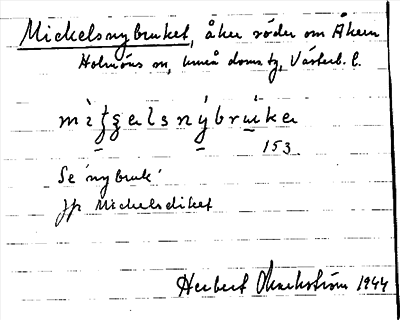 Mickelsnybruket, åker söder om Åkern
Holmöns sn, Umeå doms tg, Västerb. l.
mìʈʂɛlsnýbrukɛ
153
Se 'nybruk'
Jfr Mickelsdiket
Herbert 1944